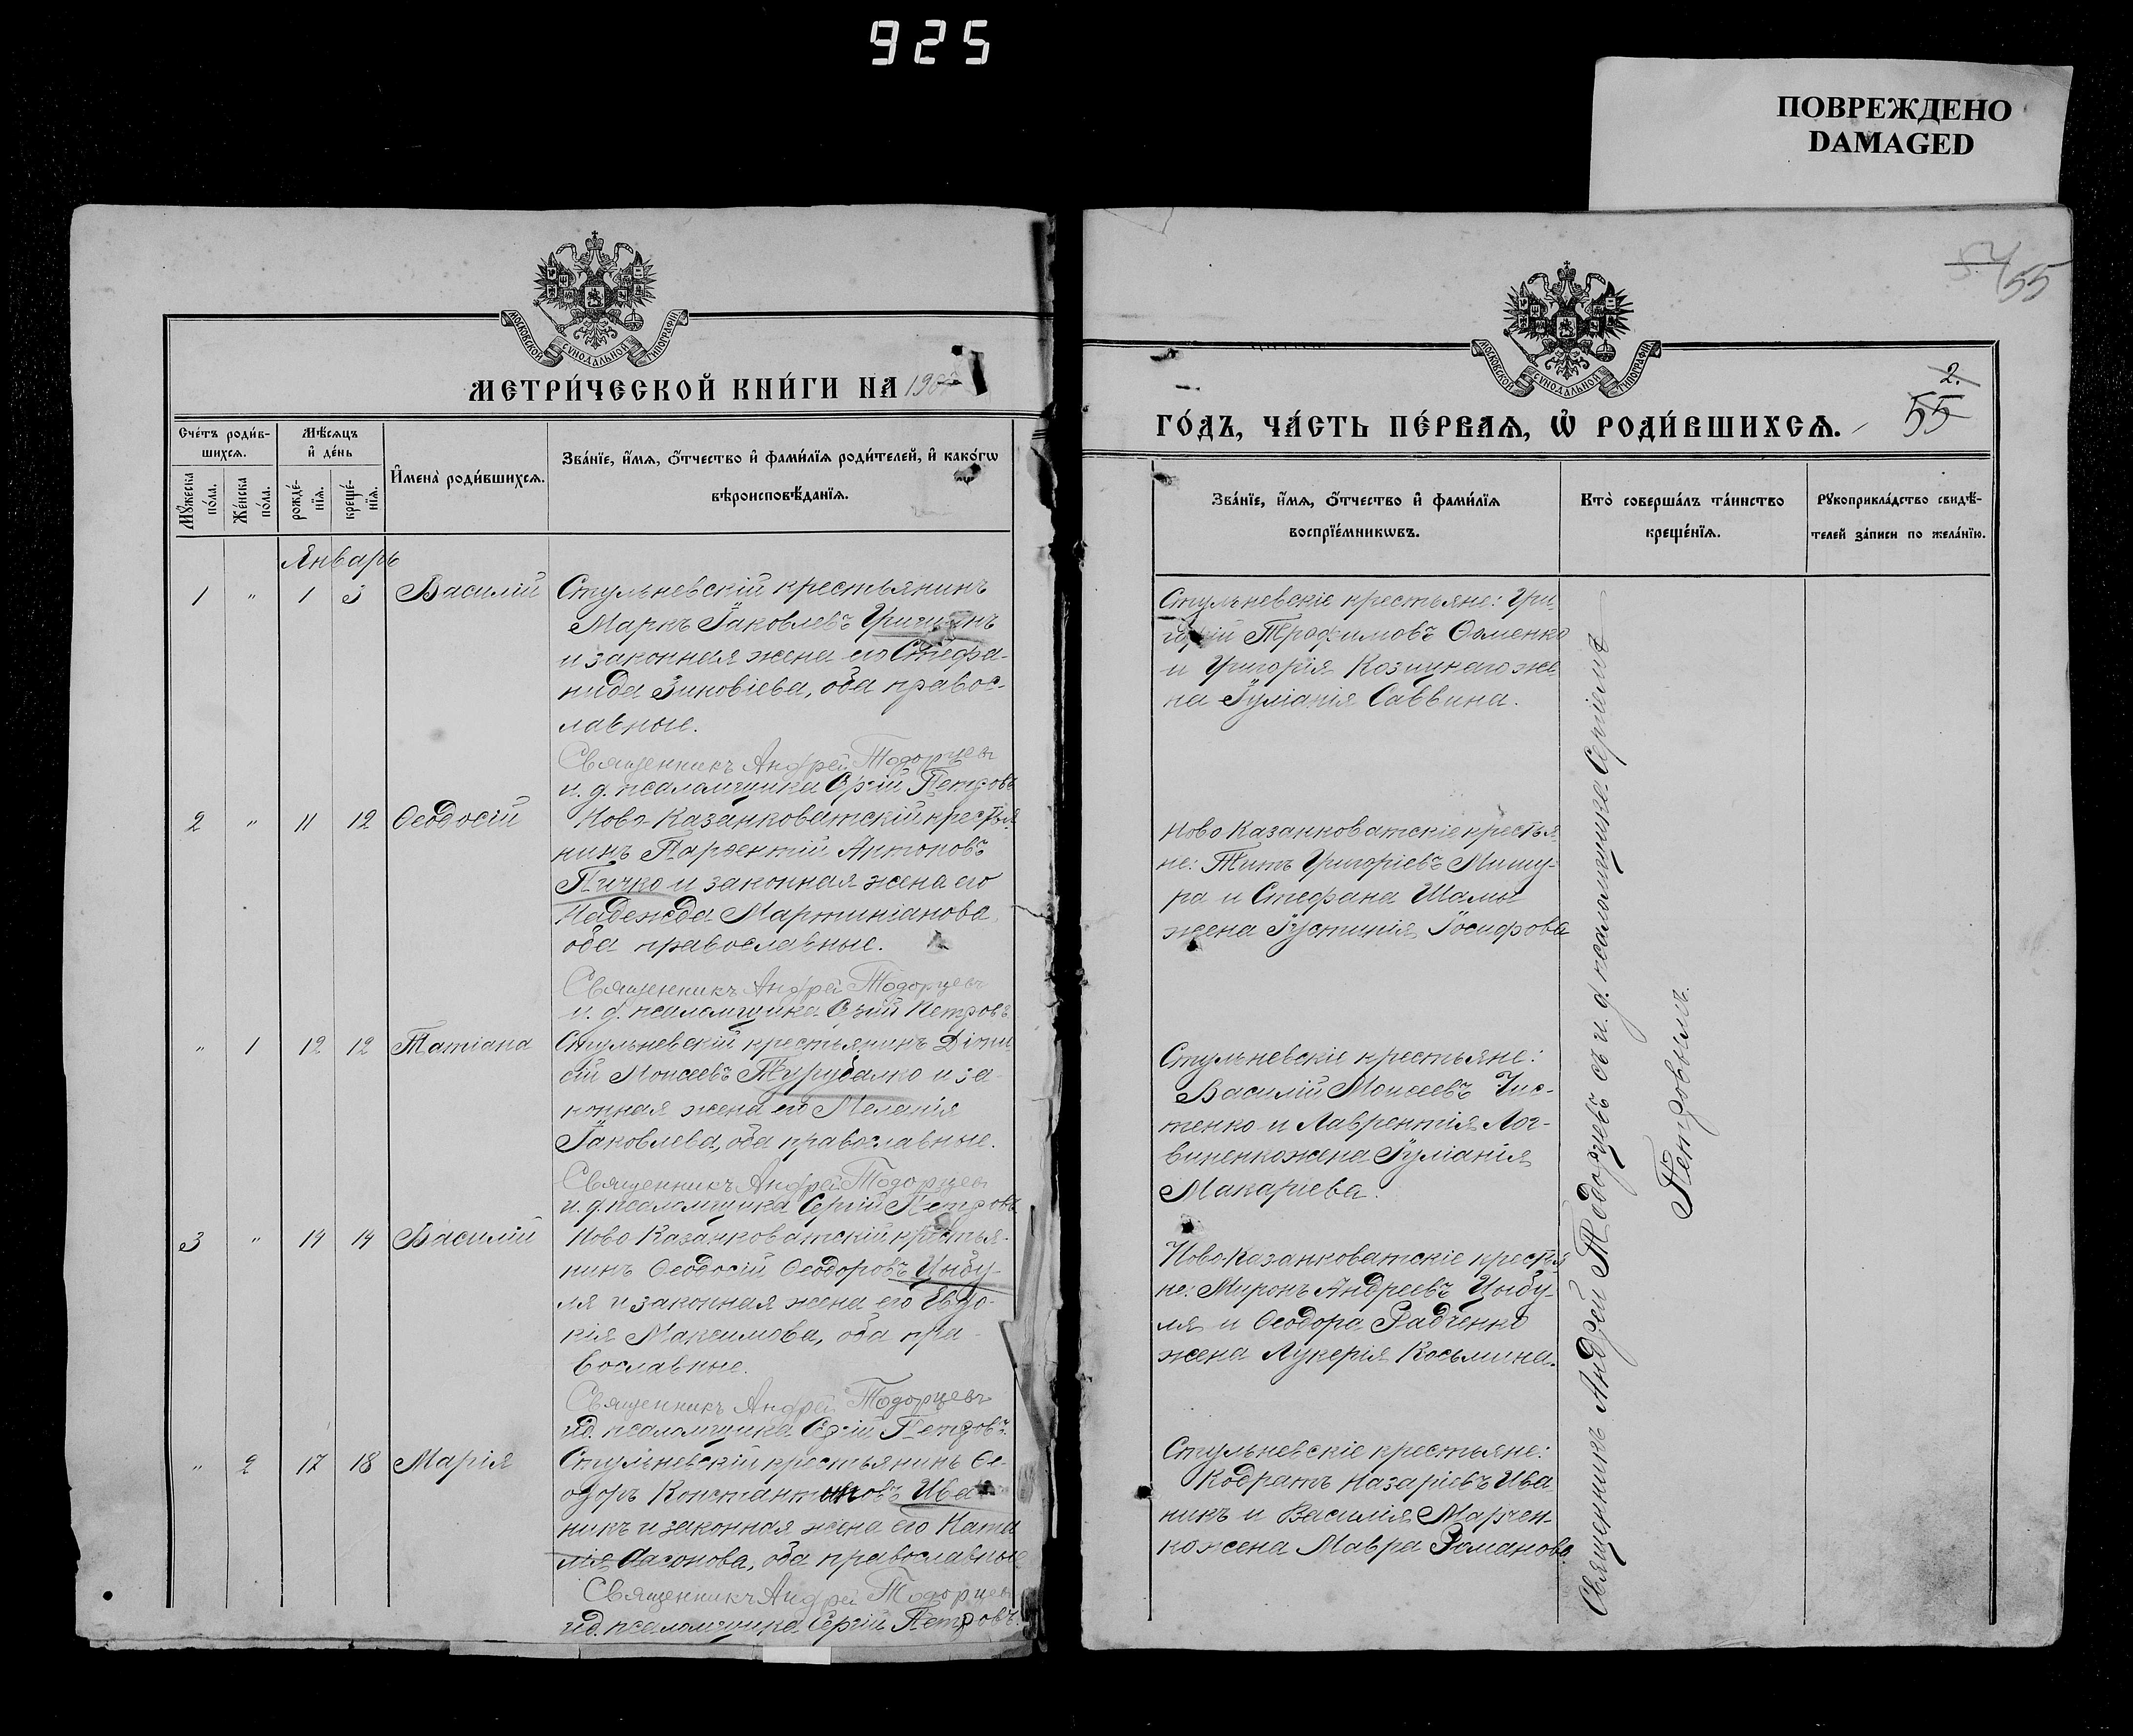 925
ПОВРЕЖДЕНО
DAMAGED
54
55
МОСКОВСКОЙ СѴНОДАЛЬНОЙ ТИПОГРАФІИ
МЕТРИ́ЧЕСКОЙ КНИ́ГИ НА 190
Сче́тъ роди́в-
шихсѧ.
Мѣ́сѧцъ
и҆ де́нь
Мꙋ́жеска по́ла.
Же́нска по́ла.
рожде́-
нїѧ.
креще́-
нїѧ.
И҆мена̀ роди́вшихсѧ.
Зва́нїе, и҆́мѧ, ѻ҆́тчество и҆ фами́лїѧ роди́телей, и҆ како́гѡ
вѣроисповѣ́данїѧ.
Январь
1 " 1 3 Василій Стульневскій крестьянинъ
Маркъ Іаковлевъ
и законная жена его Стефа-
нида Зиновіева, оба правос-
лавные.
Священникъ Андрей Тодорцевъ
и. д. псаломщика Сергій Петровъ
2 " 11 12 Ѳеодосій Ново-Казанковатскій крестья
нинъ Парѳентій Антоновъ
Пичко и законная жена его
Надежда Мартиніанова
оба православные.
Священникъ Андрей Тодорцевъ
и. д. псаломщика Сергій Петровъ
" 1 12 12 Татіана Стульневскій крестьянинъ Діони
сій Моисеевъ Турубалко и за-
конная жена его Меланія
Іаковлева, оба православные.
Священникъ Андрей Тодорцевъ
и. д. псаломщика Сергій Петровъ
3 " 14 14 Василій Ново Казанковатскій крестья-
нинъ Ѳеодосій Ѳеодоровъ Цыбу-
ля и законная жена его Евдо-
кія Максимова, оба пра-
вославные.
Священникъ Андрей Тодорцевъ
и.д. псаломщика Сергій Петровъ.
" 2 17 18 Марія Стульневскій крестьянинъ Ѳе-
одоръ Константиновъ Ива
никъ и законная жена его Ната
лія Агаѳонова, оба православные
Священникъ Андрей Тодорцевъ
и.д. псаломщика Сергій Петровъ.
МОСКОВСКОЙ СѴНОДАЛЬНОЙ ТИПОГРАФІИ
2.
55
ГО́ДЪ, ЧА́СТЬ ПЕ́РВАѦ, Ѡ҆ РОДИ́ВШИХСѦ.
Зва́нїе, и҆́мѧ, ѻ҆́тчество и҆ фами́лїѧ
воспрїе́мникѡвъ.
Кто̀ соверша́лъ та́инство
креще́нїѧ.
Рꙋкоприкла́дство свидѣ́-
телей за́писи по жела́нїю.
Стульневскіе крестьяне: Гри
горій Трофимовъ
и Григорія Козицкаго же
на Іуліанія Саввина.
Ново Казанковатскіе крестья
не: Титъ Григоріевъ Мишу-
ра и Стефана Шамы
жена Іустинія Іосифова
Стульневскіе крестьяне:
Василій Моисеевъ Чис-
тенко и Лаврентія Лог-
виненко жена Іуліанія
Макаріева.
Ново-Казанковатскіе крестья
не: Миронъ Андреевъ Цыбу-
ля и Ѳеодора Радченко
жена Лукерія Косьмина.
Стульневскіе крестьяне:
Кодратъ Назаріевъ Ива
никъ и Василія Марчен-
ко жена Мавра Романова
Священникъ Андрей Тодорцевъ съ и. д. псаломщика Сергіемъ
Петровымъ.